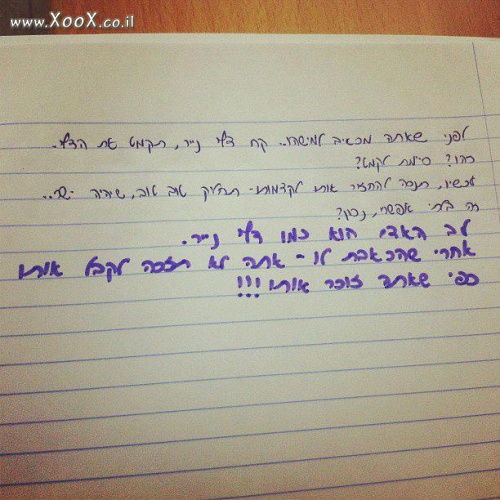 www.XooX.co.il
לפני שאתה מכאיב למישהו.. קח דף נייר, תקמט את הדף.
נהו? סיימת לקמט?
עכשיו, תנסה להחזיר אותו לקדמותו- תחליק טוב טוב, שיהיה ישר..
זה בלתי אפשרי, נכון?
לב האדם הוא כמו דף נייר.
אחרי שהכאבת לו - אתה לא תזכה לקבל אותו
כפי שאתה זוכר אותו!!!